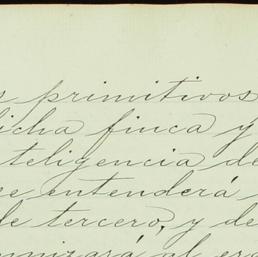 s primitivos
dicha finca y
nteligencia de
se entenderá
de tercero, y de